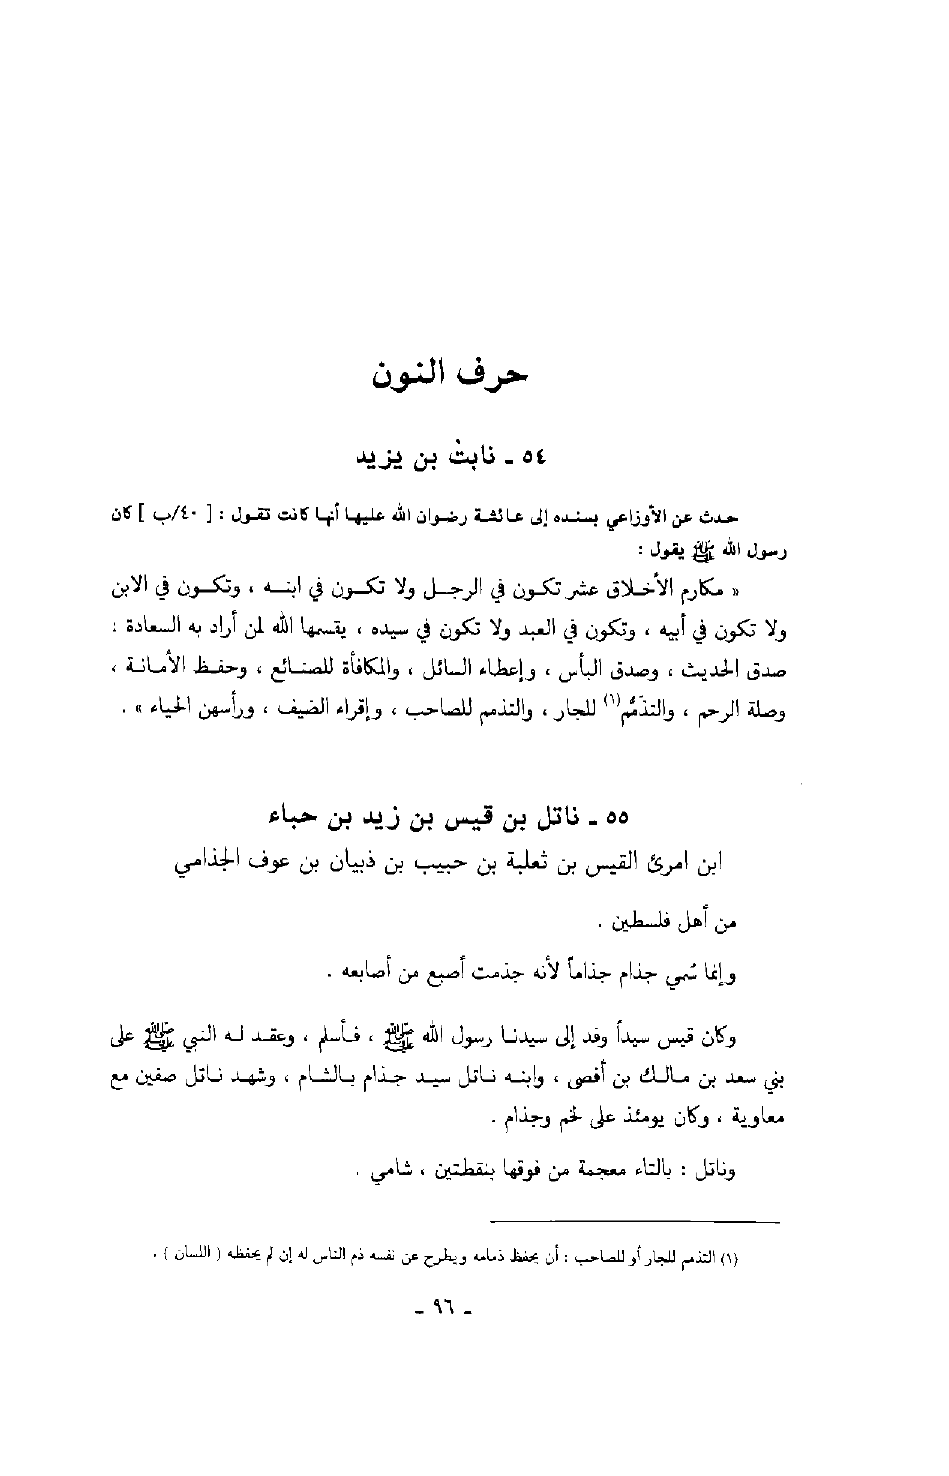 حرف النون
٥٤ ـ نابت بن يزيد
حدث عن الأوزاعي بسنده إلى عائشة رضوان الله عليها أنها كانت تقول : [ ٤٠/ب ] كان
رسول الله ﷺ يقول :
« مكارم الأخلاق عشر تكون في الرجل ولا تكون في ابنه ، وتكون في الابن
ولا تكون في أبيه ، وتكون في العبد ولا تكون في سيده ، يقسمها الله لمن أراد به السعادة :
صدق الحديث ، وصدق البأس ، وإعطاء السائل ، والمكافأة للصنائع ، وحفظ الأمانة ،
وصلة الرحم ، والتذمُّم(١) للجار ، والتذمم للصاحب ، وإقراء الضيف ، ورأسهن الحياء » .
٥٥ ـ ناتل بن قيس بن زيد بن حباء
ابن امرئ القيس بن ثعلبة بن حبيب بن ذبيان بن عوف الجذامي
من أهل فلسطين .
وإنما سُمي جذام جذاماً لأنه جذمت أصبع من أصابعه .
وكان قيس سيداً وفد إلى سيدنا رسول الله ﷺ ، فأسلم ، وعقد له النبي ﷺ على
بني سعد بن مالك بن أفصى ، وابنه ناتل سيد جذام بالشام ، وشهد ناتل صفين مع
معاوية ، وكان يومئذ على لخم وجذام .
وناتل : بالتاء معجمة من فوقها بنقطتين ، شامي .
(١) التذمم للجار أو للصاحب : أن يحفظ ذمامه ويطرح عن نفسه ذم الناس له إن لم يحفظه ( اللسان ) .
ـ ٩٦ ـ